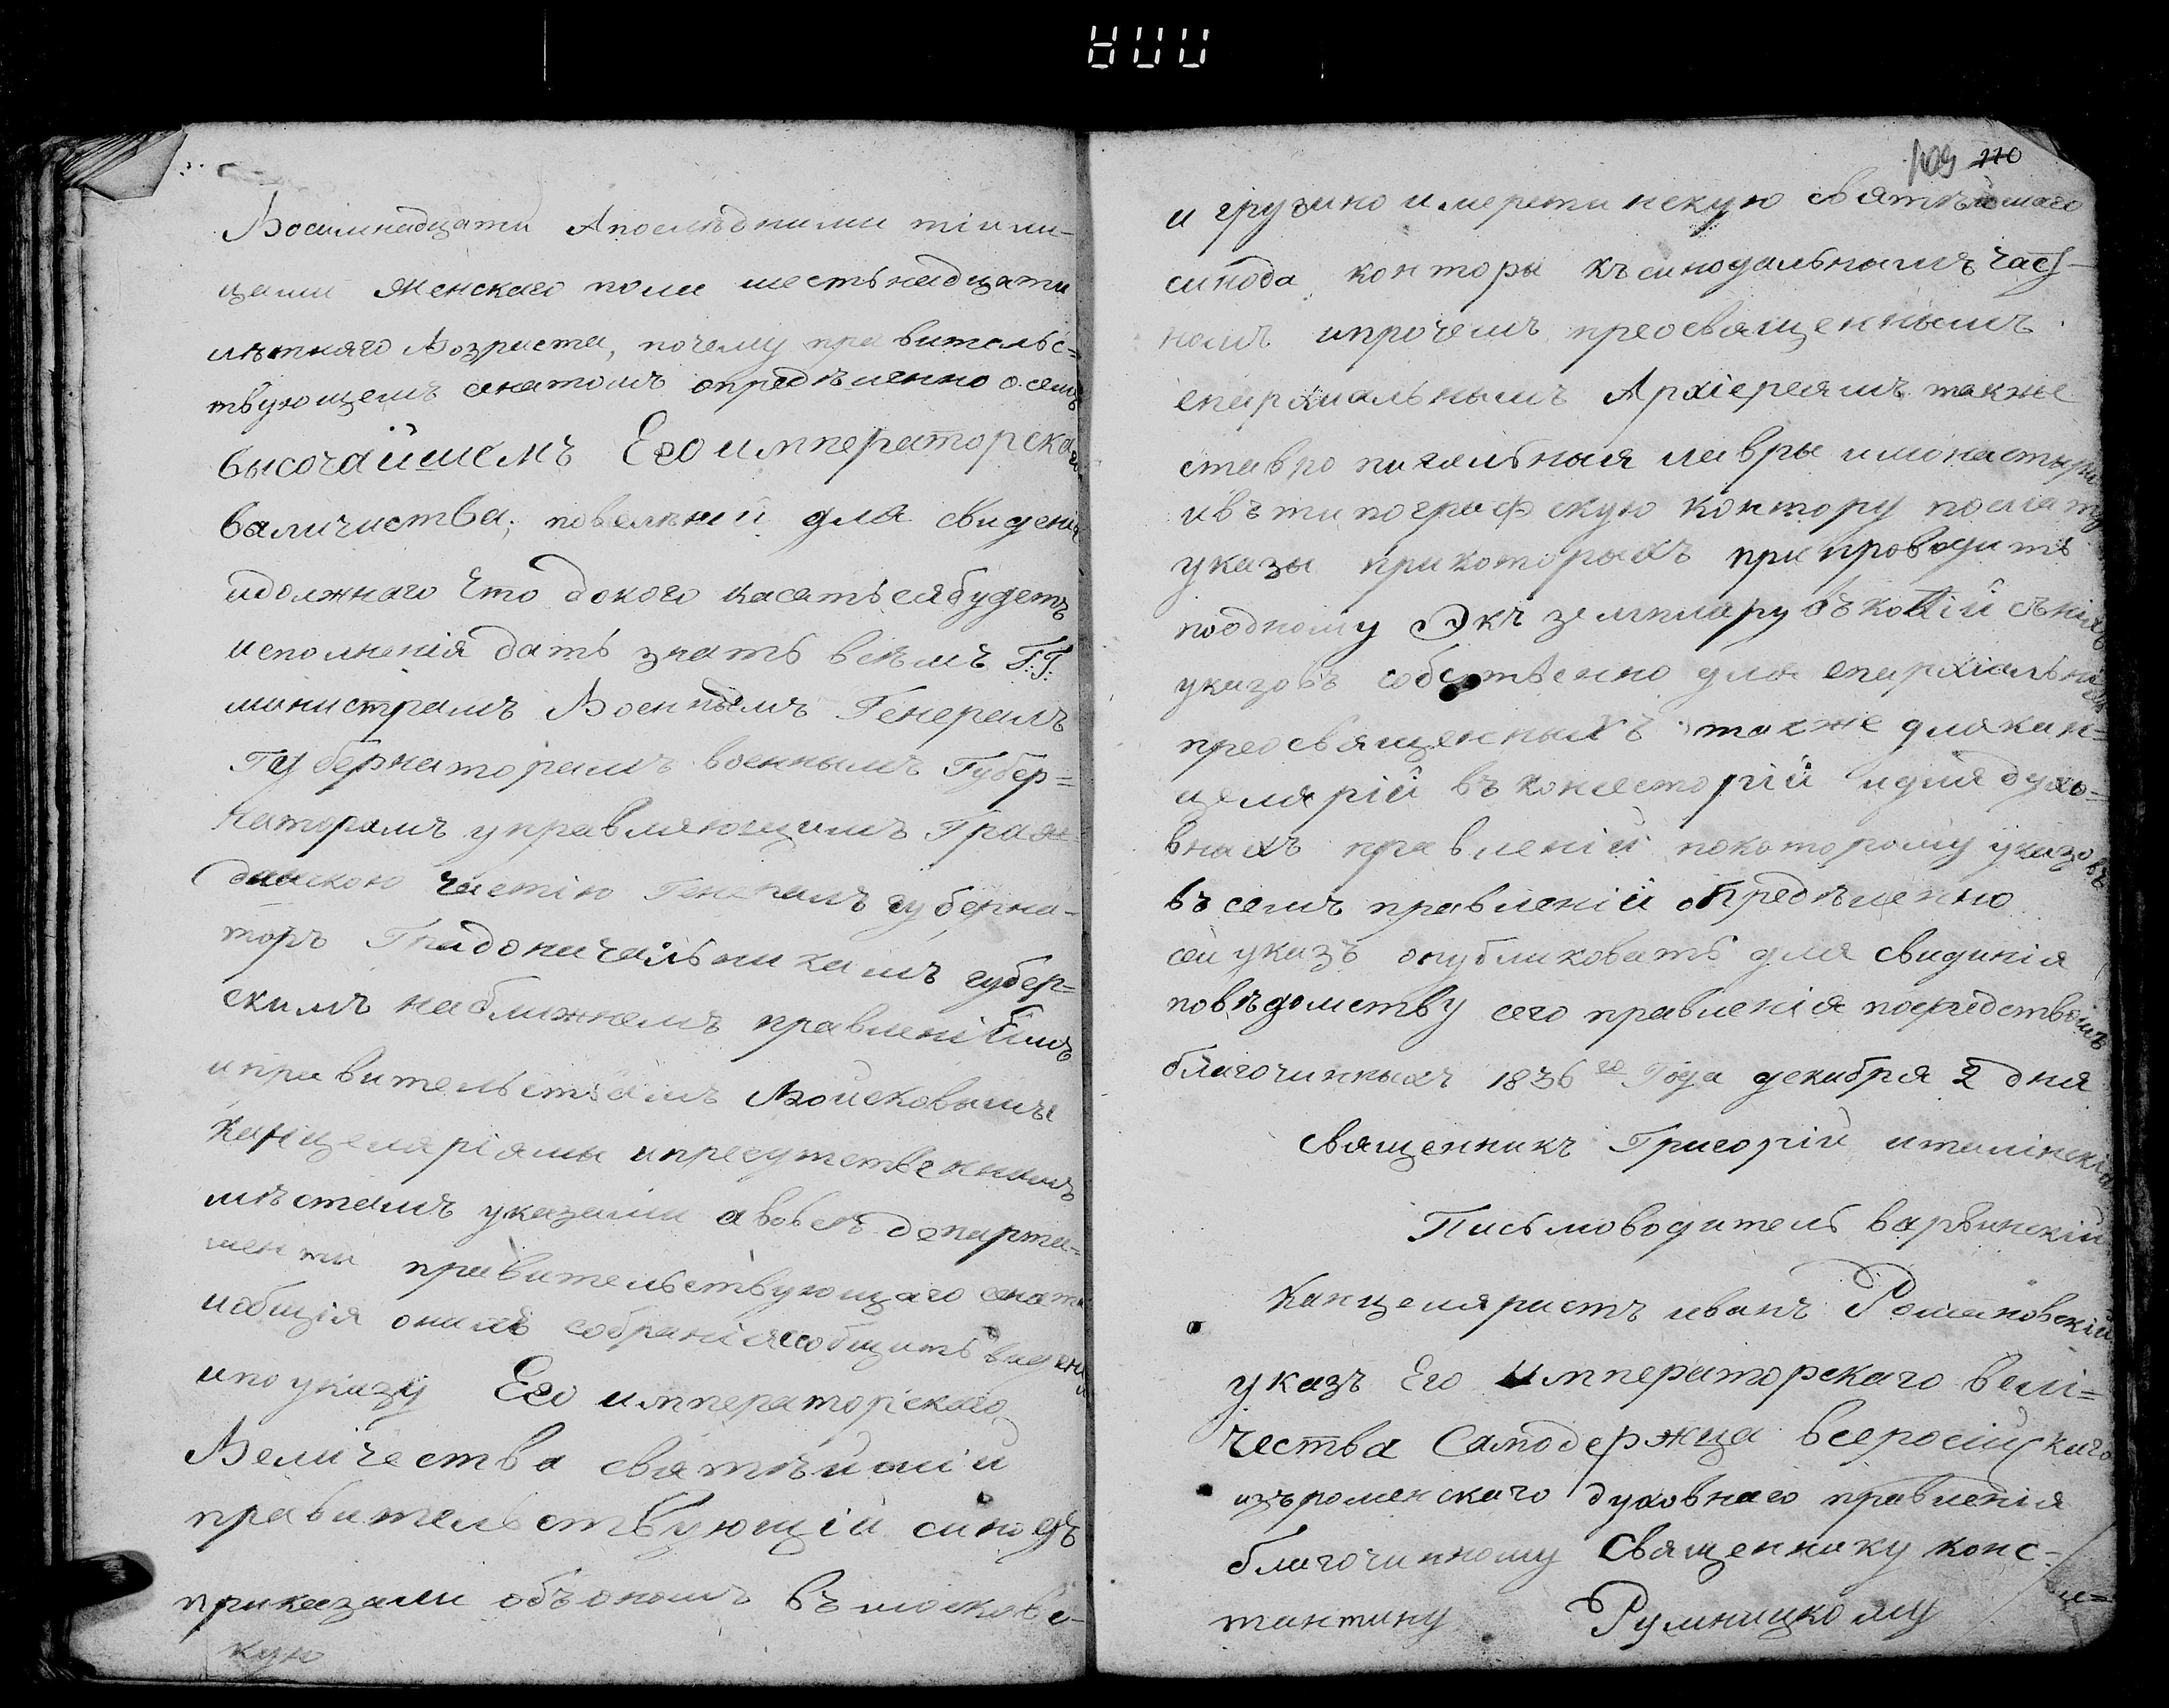 Восимнадцати Апослѣдними тіи ли-
цами женскаго пола шестьнадцати
лѣтняго Возраста, почему правительс=
твующемъ сенатомъ опредѣленно о семъ
высочайшемъ Его императорскаго
валичиства; повелѣніи для свиденія
идолжнаго что докого касатьсябудетъ
исполненія дать знать всѣмъ Г.Г.
министрамъ Военнымъ Генералъ
Губернаторамъ военнымъ Губер=
наторамъ управляющимъ Граж=
данскою частію Генералъ губерна-
торъ Градоначальникамъ губер=
скимъ правленіямъ
иправительствамъ Войсковымъ
Канцеляріямы иприсутственнымъ
мѣстамъ указами авовсѣ департа=
менты правительствующаго сената
иобщія онихъ собраніясообщить веденіи
ипо указу Его императорскаго
Величества святѣйшій
правительствующій синодъ
приказали объономъ въ московс-
кую
109 110
и грузино имеретинскую святѣйшаго
синода конторы къ синодальнымъ час-
номъ ипрочемъ преосвященнымъ
епархиальнымъ Архіереямъ также
ставропигальныя лавры имонастыри
ивъ типографскую контору послать
указы прикоторыхъ при проводить
поодному Экъземпляру въ копій сънихъ
указовъ собственно для епархіальныхъ
преосвященныхъ также для кан=
целярій въ консесторій идля духо=
вныхъ правленій покоторому указовъ
въ семъ правленій опредѣленно
сей указъ опубликовать для свидинія
повѣдомству сего правленія посредствомъ
благочинныхъ 1836го Года декабря 2 дня
священникъ Григорій италінскій
Письмоводитель варвинскій
Канцеляристъ иванъ Романовскій
указъ Его императорскаго вели=
чества Самодержца всеросийскаго
изъроменскаго духовнаго правленія
благочинному Священнику конс-
тантину Румницкому